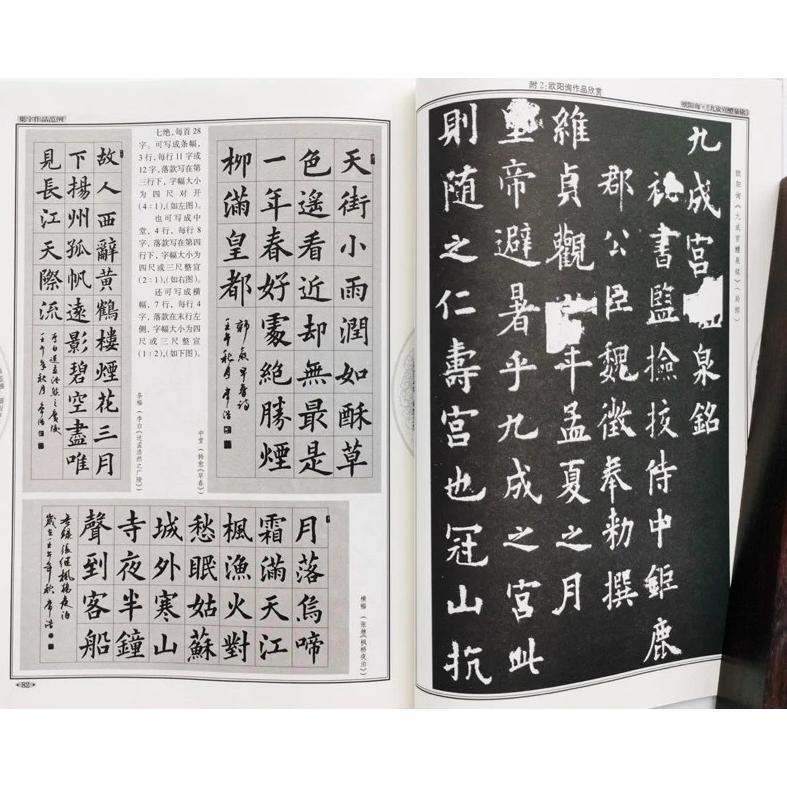 集字作品范例
故人西辭黄鶴樓煙花三月
下揚州孤帆遠影碧空盡唯
見長江天際流
李白送孟浩然之廣陵
壬午年秋月常浩
七绝，每首28
字。可写成条幅，
3行，每行11字或
12字，落款写在第
三行下，字幅大小
为四尺对开
（4∶1），（如左图）。
也可写成中
堂，4行，每行8
字，落款写在第四
行下，字幅大小为
四尺或三尺整宣
（2∶1），（如右图）。
还可写成横
幅，7行，每行4
字，落款在末行左
侧，字幅大小为四
尺或三尺整宣
（1∶2），（如下图）。
条幅（李白《送孟浩然之广陵》）
天街小雨潤如酥草
色遥看近却無最是
一年春好處絶勝煙
柳滿皇都
韩愈早春詩
壬午秋月常浩
中堂（韩愈《早春》）
月落烏啼
霜滿天江
楓漁火對
愁眠姑蘇
城外寒山
寺夜半鐘
聲到客船
唐張繼楓橋夜泊
歲在壬午年秋常浩
横幅（张继《枫桥夜泊》）
82
附2：欧阳询作品欣赏
欧阳询·《九成宫醴泉铭》
欧阳询《九成宫醴泉铭》（局部）
九成宫泉銘
祕書監撿挍侍中鉅鹿
郡公臣魏徵奉勑撰
維貞觀年孟夏之月
皇帝避暑乎九成之宫此
則随之仁壽宫也冠山抗